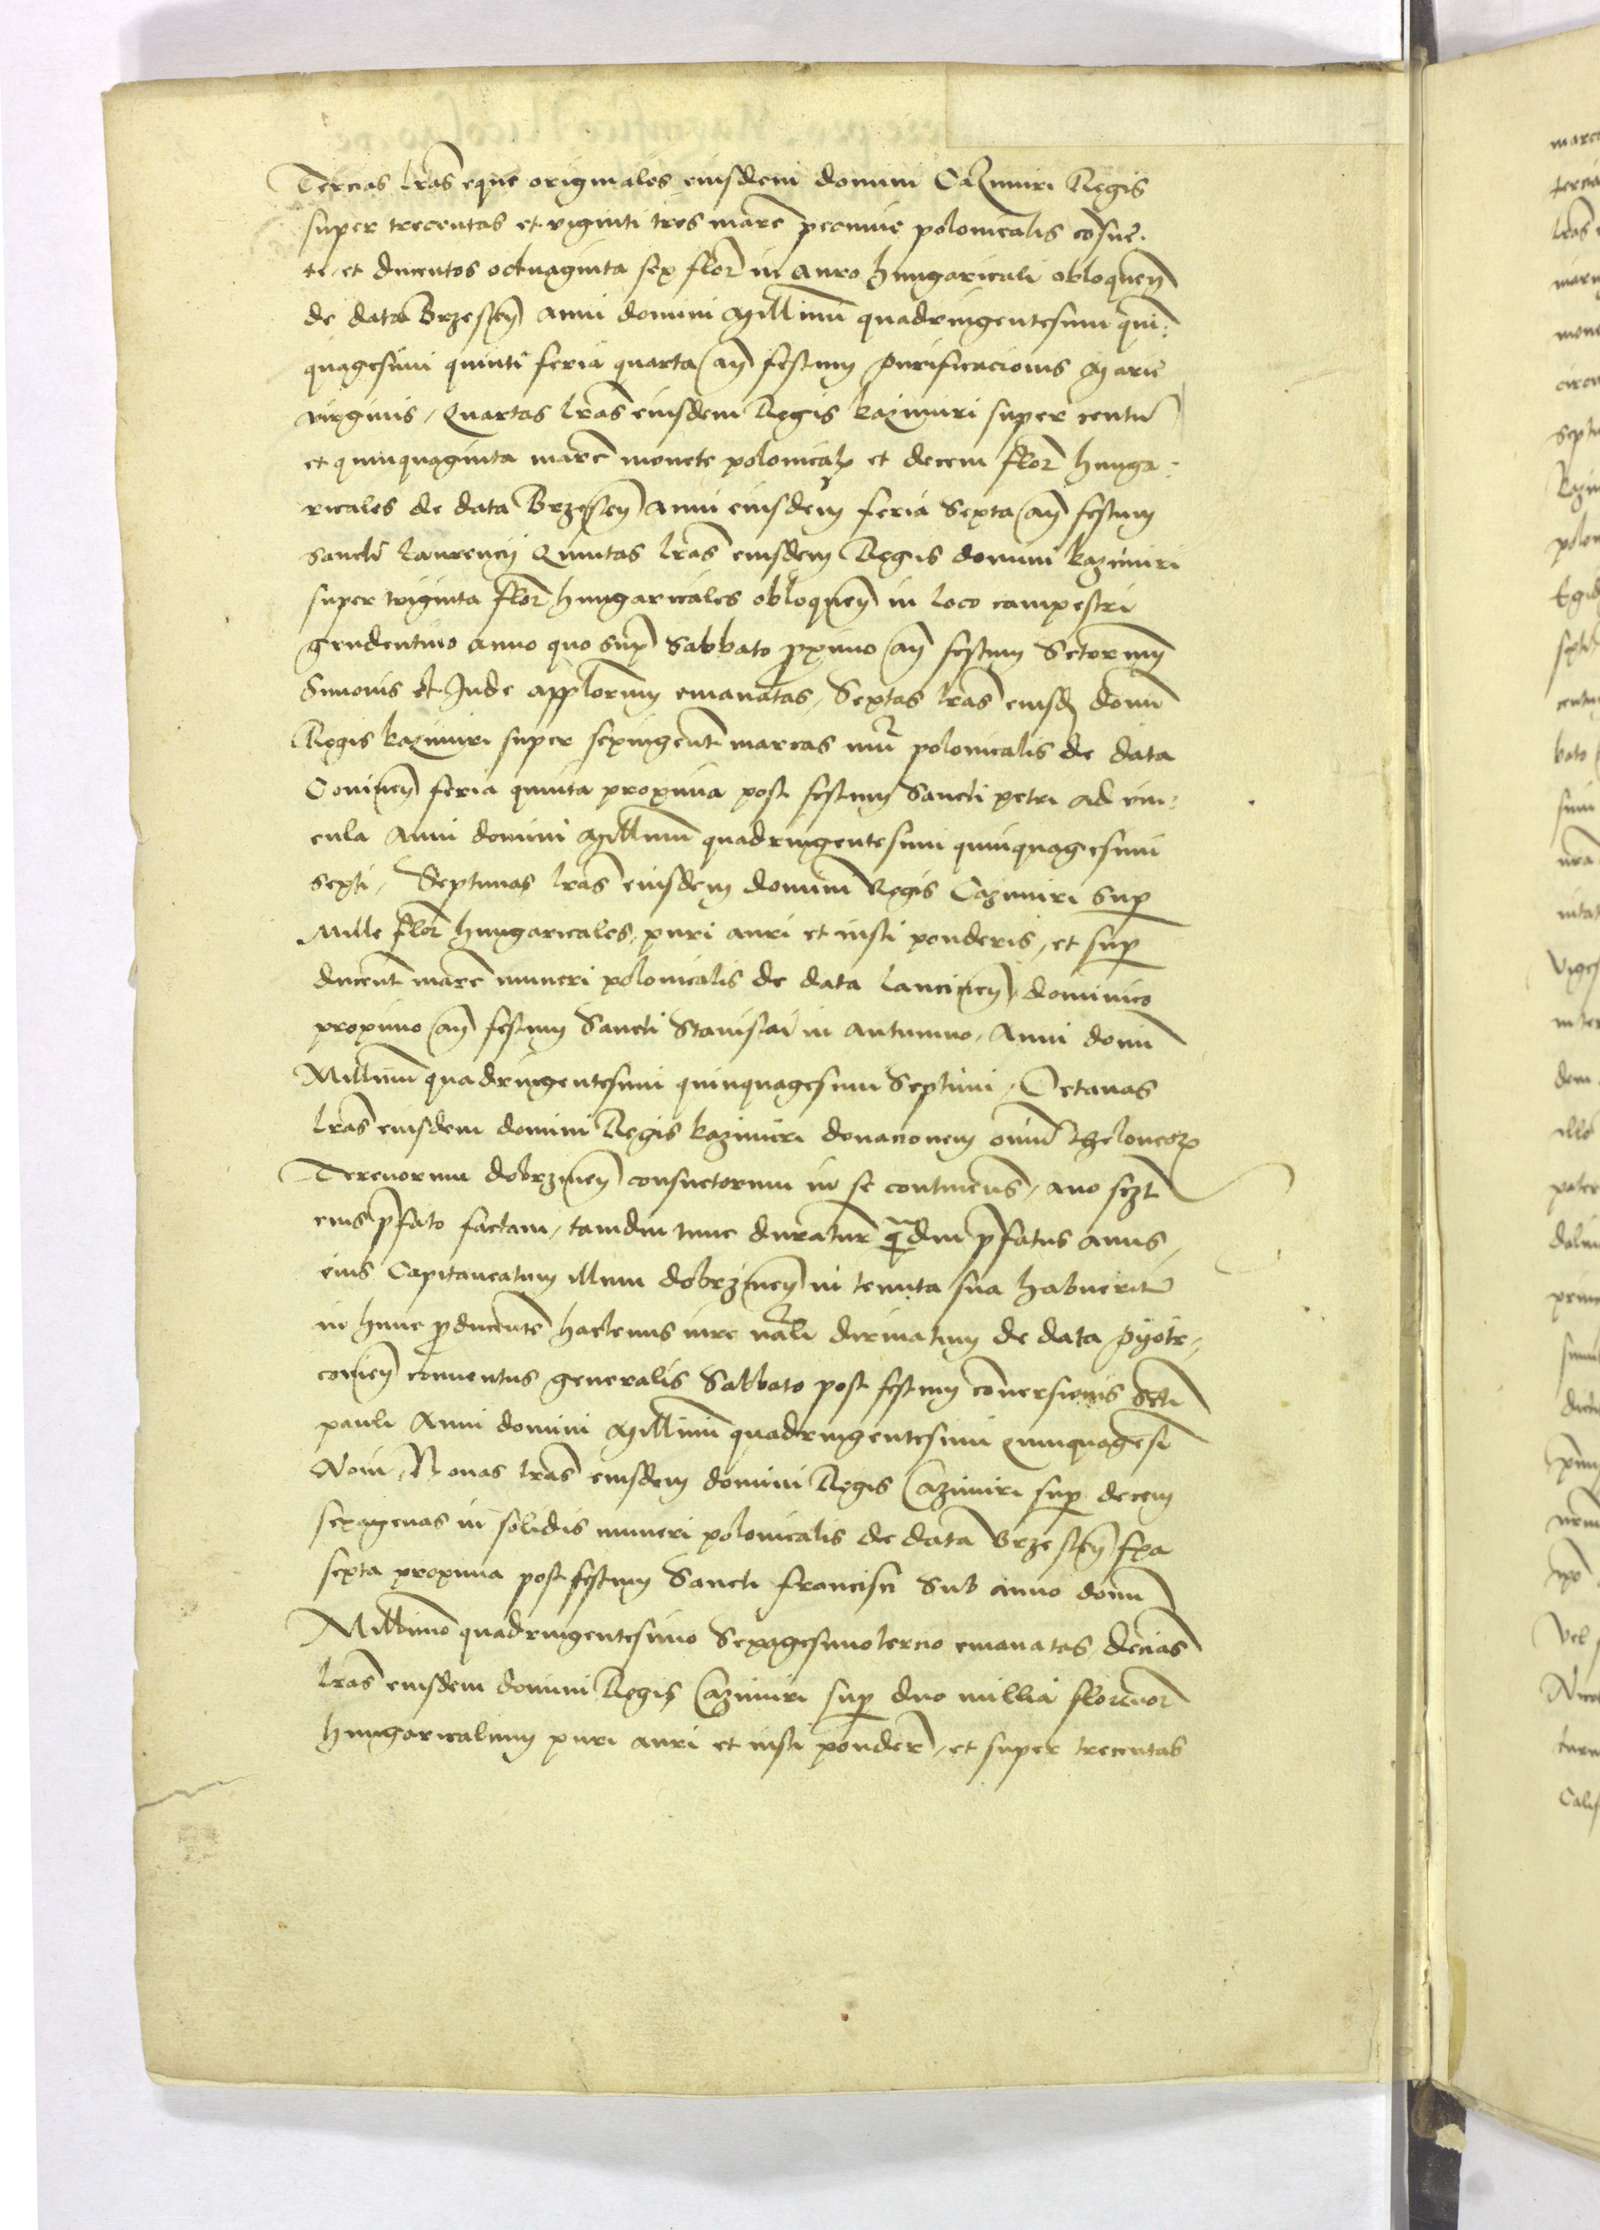 Tercias lras eque originales eiusdem domini Cazimiri Regis
super trecentas et viginti tres marc pecunie polonicalis cosue-
te, et ducentos octuaginta sex flor in auro hungaricali obloquen
de data Brzesten anni domini Millimi quadringentesimi qui-
quagesimi quinti feria quarta an festum purificacionis Marie
virginis, Quartas lras eiusdem Regis kazimiri super centu
et quinquaginta marc monete polonical et decem flor hunga-
ricales de data Brzesten anni eiusdem feria Sexta an festum
Sancti laurencij Quintas lras eiusdem Regis domini kazimiri
super triginta flor hungaricales obloquen in loco campestri
grudentino anno quo sup Sabbato pximo an festum Sctorum
Simonis et Jude applorum emanatas, Sextas lras eiusd domi
Regis kazimiri super sexingenti marcas mur polonicalis de data
Coninen feria quinta proxima post festum Sancti petri ad vin-
cula Anni domini Millimi quadringentesimi quinquagesimi
sexti, Septimas lras eiusdem domini Regis Cazimiri Sup
Mille flor hungaricales, puri auri et iusti ponderis, et sup
ducent marc numeri polonicalis de data lancicien, dominico
proximo an festum Sancti Stanislai in autumno, Anni domi
Millimi quadringentesimi quinquagesimi Septimi, Octavas
lras eiusdem domini Regis kazimiri donacionem oniu theloneor
Terrenorum dobrzinen consuetorum in se continens, avo
eius pfato factam, tamdiu tunc duratur qdiu pfatus avus,
eius Capitaneatum illum dobrzinen in tenuta sua habuerit
in hunc pducente hactenus iure nrali dirivatum de data pyotr-
comen conventus generalis Sabbato post festum conversionis Scti
pauli Anni domini Millimi quadringentesimi quinquagesi
Noni, Nonas lras eiusdem domini Regis Cazimiri sup decem
sexagenas in solidis numeri polonicalis de data Brzesten fra
sexta proxima post festum Sancti francisci Sub anno domi
Millimo quadringentesimo Sexagesimotercio emanatas, decias
lras eiusdem domini Regis Cazimiri sup duo millia florenor
hungaricalium puri auri et iusti ponder, et super trecentas